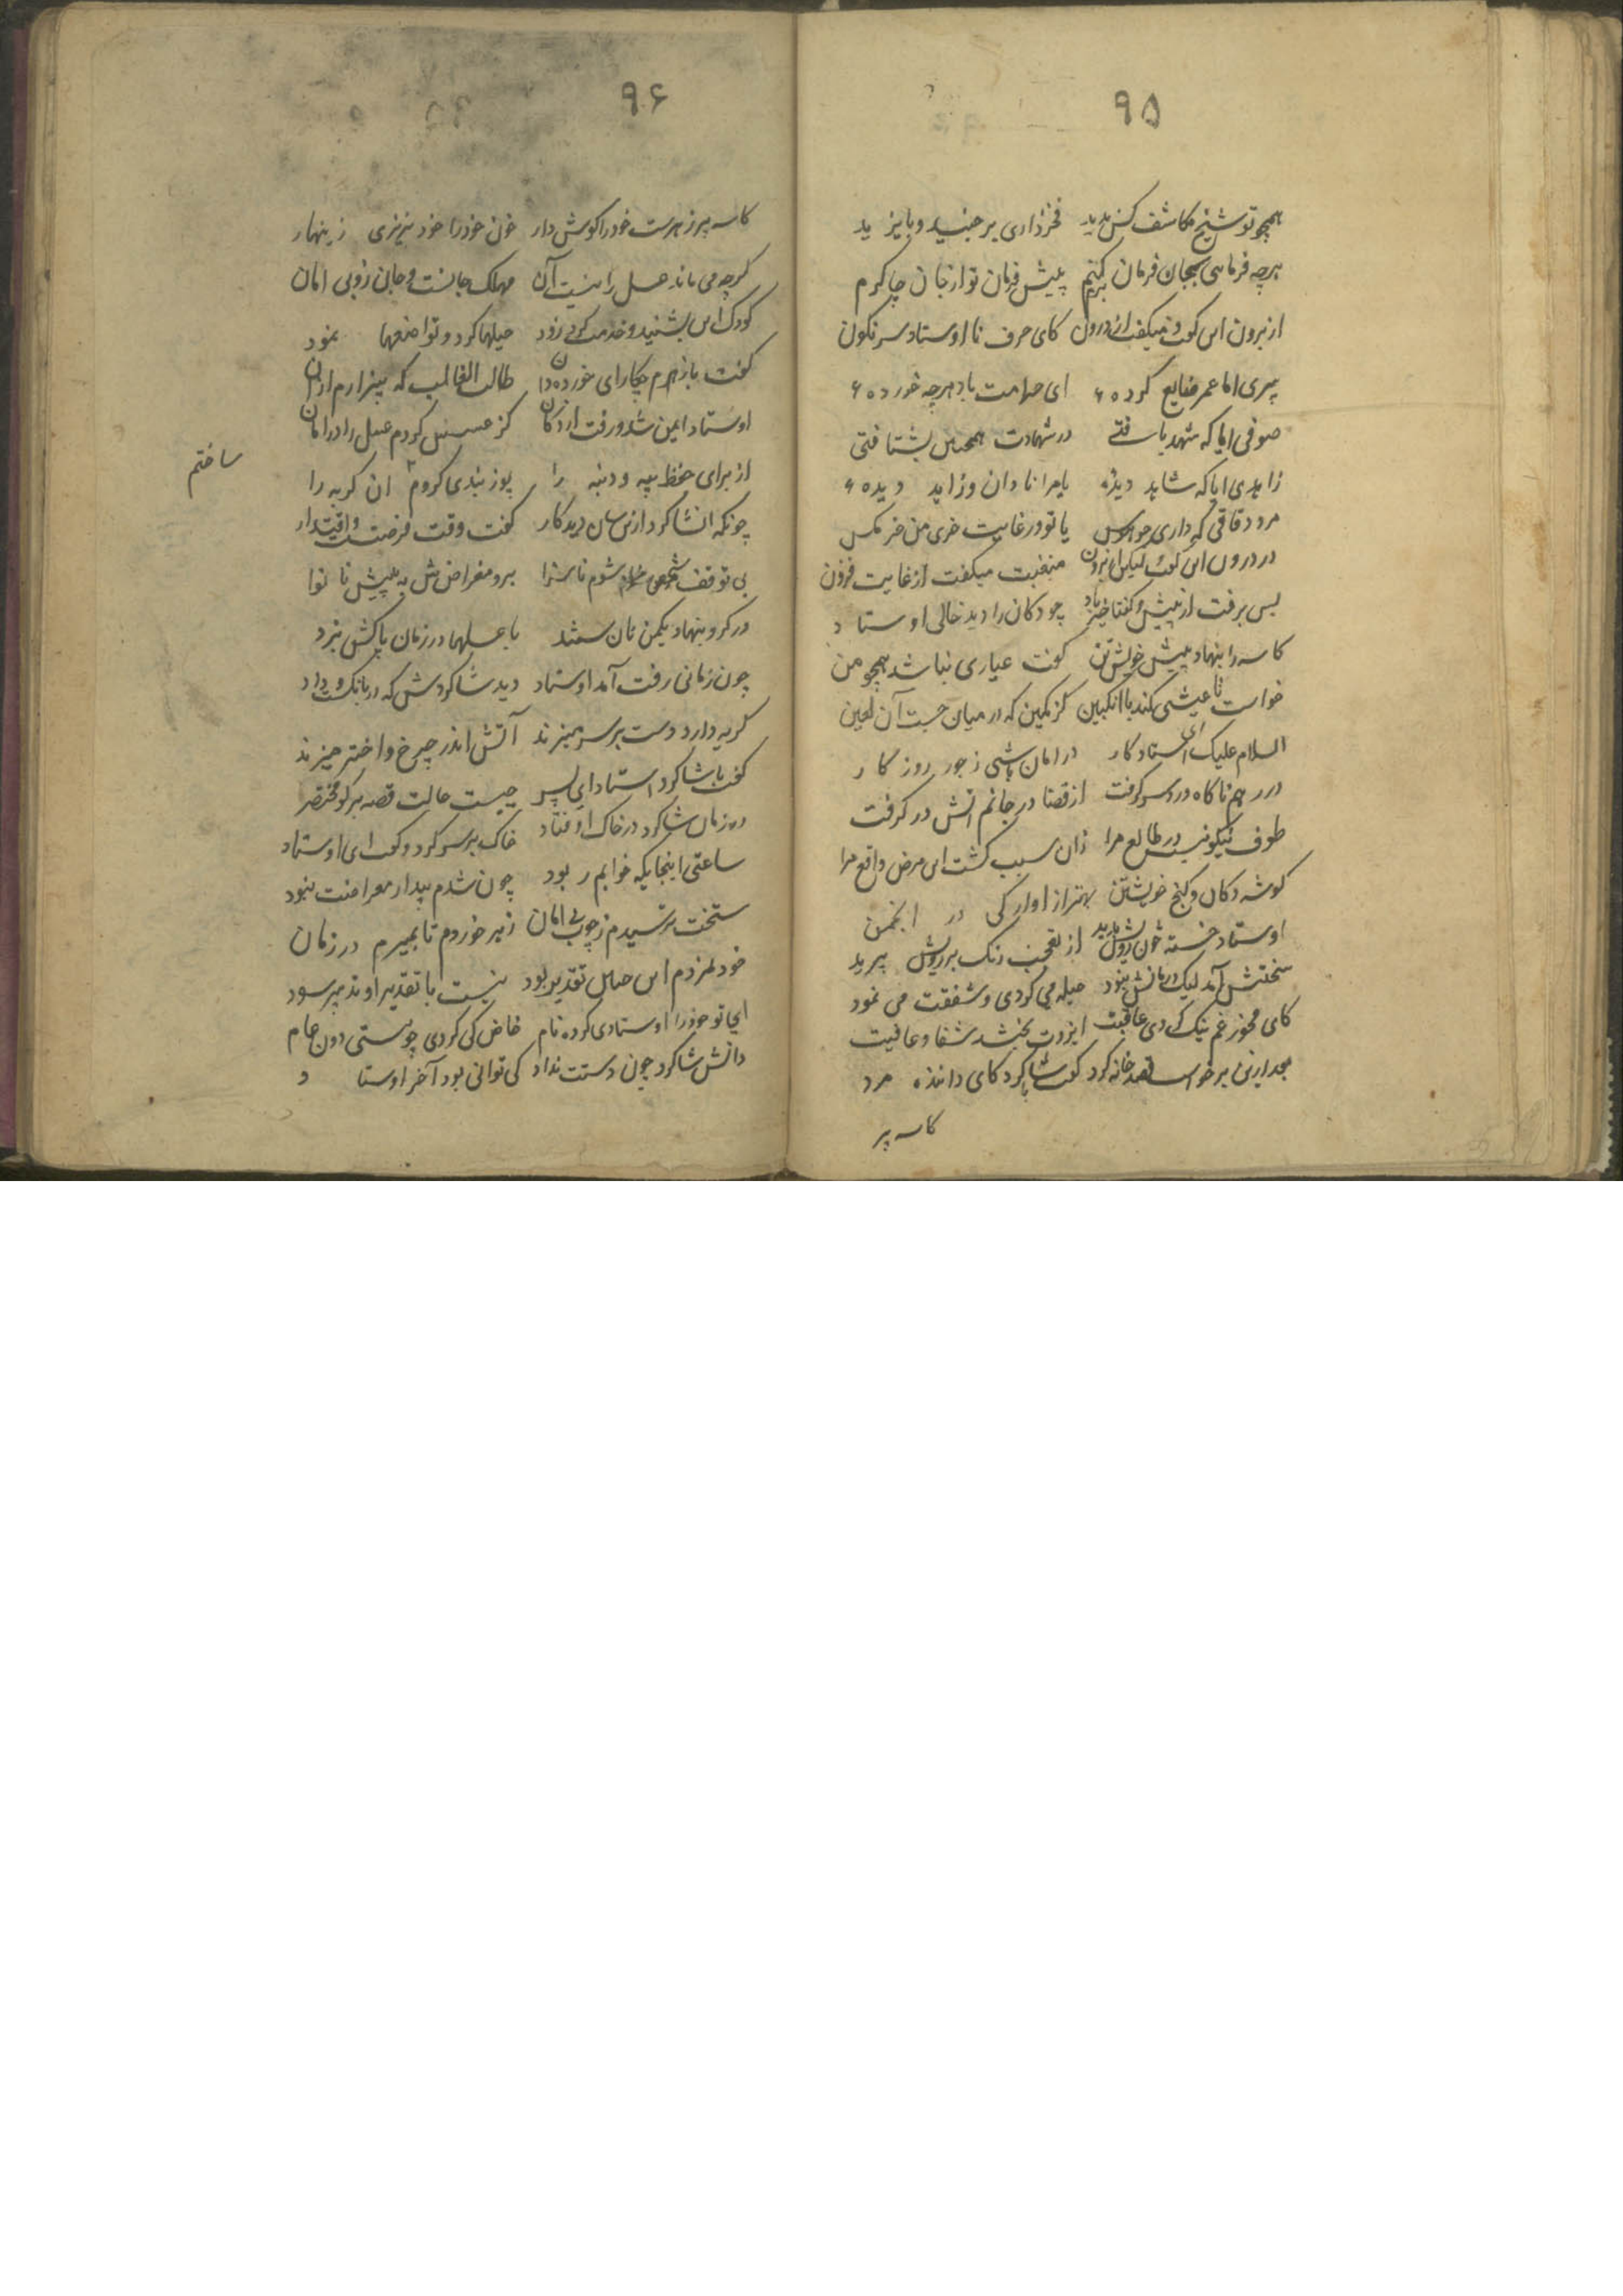 ۹۵
همچو تو شیخ مکاشف کس ندید فخر داری بر جنید و بایزید
هرچه فرمایی بجان فرمان بریم پیش فرمان تو از جان چاکرم
از برون این گفت و میگفت از درون کای حرف نا اوستاد سرنگون
پیری اما عمر ضایع کرده ای حرامت باد هرچه خورده
صوفی اما که شهد یافتی در شهادت همچنین بشتافتی
زاهدی اما که شاید دیده یا مرا نادان و زاهد دیده
مرد دقاقی که داری یا تو در غایت خری من خرمگس
در درون این گفت لیکن از برون منقبت میگفت از غایت فزون
پس برفت از پیش و گفتا خیر باد چو دکان را دید خالی اوستاد
کاسه را بنهاد پیش خویشتن گفت عیاری نباشد همچو من
خواست تا عیشی کند با انگبین کز کمین که در میان جست آن لعین
السلام علیک ای استاد کار در امان باشی ز جور روزکار
در رهم ناکاه درد سر گرفت از قضا در جانم اتش در گرفت
طوف نیکو نیست در طالع مرا زان سبب گشت این مرض واقع مرا
گوشه دکان و کنج خویشتن بهتر از اوارکی در انجمن
اوستاد خسته چون رویش بدید از تعجب رنگ بر رویش پرید
سختش آمد لیک درمانش نبود حیله می کردی و شفقت می نمود
کای مخور غم نیک کردی عاقبت ایزدت بخشد شفا و عافیت
بعد ازین برخواست قصد خانه کرد گفت با شاگرد کای داننده مرد
کاسه پر
۹۶
کاسه پر زهرست خود را گوش دار خون خود را خود نریزی زینهار
گرچه می ماند عسل را نیست آن مهلک جانست و جان زو بی امان
کودک این بشنید و خدمت کرد زود حیلها کرد و تواضعها نمود
گفت با زهرم چکار ای خورده دان طالب الغالب که بیزارم از ان
اوستاد ایمن شد و رفت از دکان کز عسس کردم عسل را در امان
از برای حفظ پیه و دنبه را پوز بندی کردم ان گربه را
ساختم
چونکه انشاگرد ازین سان دید کار گفت وقت فرصتست و اقتدار
بی توقف شوم ناسزا برد مقراضش به پیش نانوا
در گرو بنهاد یکمن نان ستد با عسلها در زمان پاکش بزد
چون زمانی رفت آمد اوستاد دید شاگردش که در بانگست و داد
گریه دارد دست بر سر میزند آتش اندر چرخ و اختر میزند
گفت با شاگرد استاد ای پسر چیست حالت قصه برگو مختصر
در زمان شاگرد در خاک اوفتاد خاک بر سر کرد و گفت ای اوستاد
ساعتی اینجایکه خوابم ربود چون شدم بیدار مقراضت نبود
سخت ترسیدم ز چوب بی امان زهر خوردم تا بمیرم در زمان
خود نمردم این حال تقدیر بود نیست با تقدیر او تدبیر سود
ای تو خود را اوستادی کرده نام خاص کی گردی چو هستی دون عام
دانش شاگرد چون دستت نداد کی توانی بود آخر اوستاد